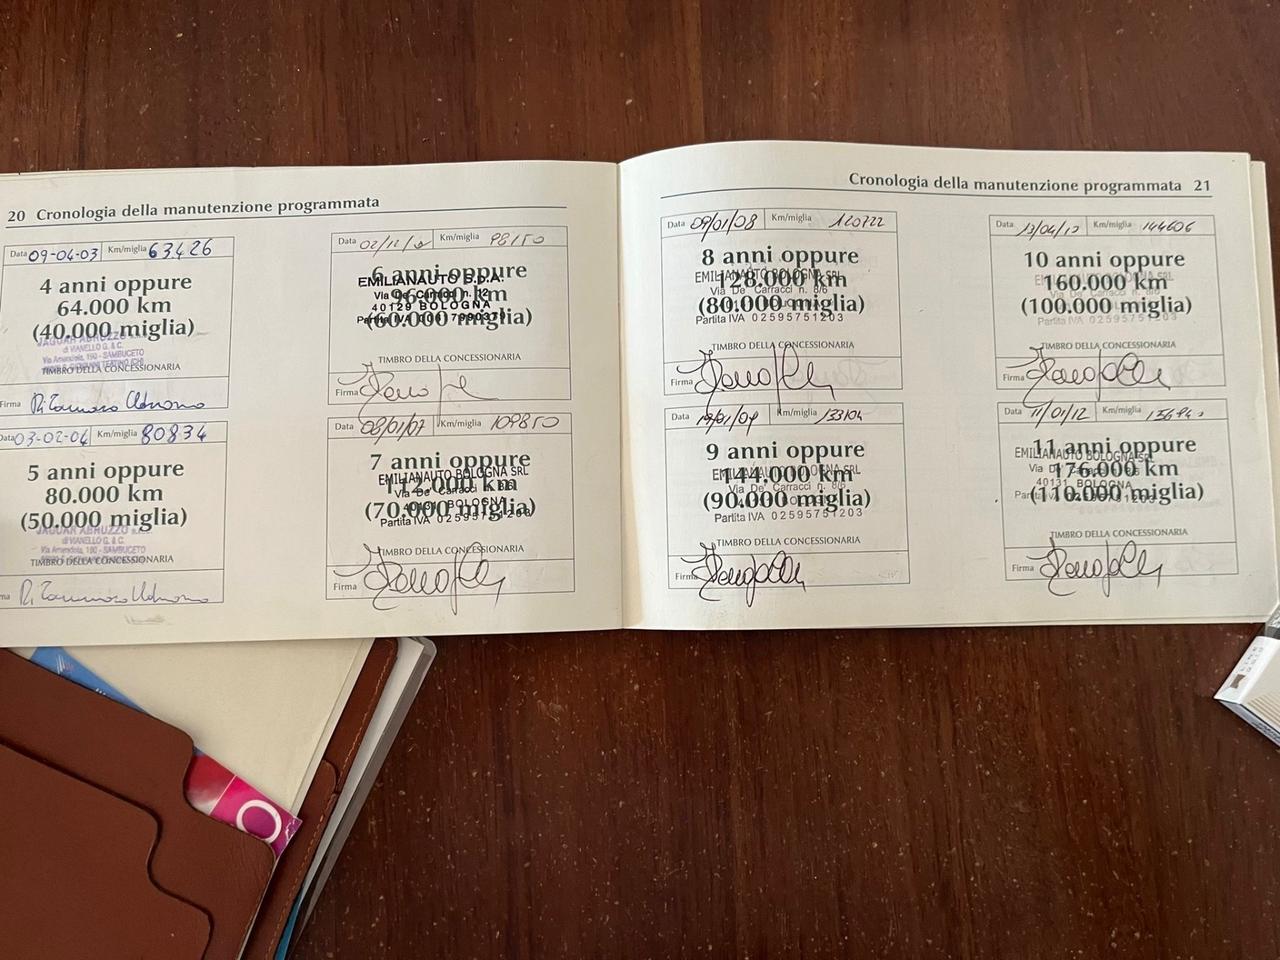 20 Cronologia della manutenzione programmata
Data 09-04-03 Km/miglia 63426
4 anni oppure
64.000 km
(40.000 miglia)
JAGUAR ABRUZZO
di VIANELLO G. & C.
Via Amendola, 190 - SAMBUCETO
TIMBRO DELLA CONCESSIONARIA
Firma
Data 03-02-04 Km/miglia 80834
5 anni oppure
80.000 km
(50.000 miglia)
JAGUAR ABRUZZO
di VIANELLO G. & C.
Via Amendola, 190 - SAMBUCETO
TIMBRO DELLA CONCESSIONARIA
Data Km/miglia 98150
6 anni oppure
EMILIANAUTO S.p.A.
Via De' Carracci n. 12
40129 BOLOGNA
Partita IVA
TIMBRO DELLA CONCESSIONARIA
Firma
Data 08/01/07 Km/miglia 109850
7 anni oppure
EMILIANAUTO BOLOGNA SRL
Via De' Carracci n. 8/6
(70.000 miglia)
40131 BOLOGNA
Partita IVA 02595751203
TIMBRO DELLA CONCESSIONARIA
Firma
Cronologia della manutenzione programmata 21
Data 09/01/08 Km/miglia 120722
8 anni oppure
EMILIANAUTO BOLOGNA SRL
128.000 km
Via De' Carracci n. 8/6
(80.000 miglia)
Partita IVA 02595751203
TIMBRO DELLA CONCESSIONARIA
Firma
Data 19/01/09 Km/miglia 133104
9 anni oppure
EMILIANAUTO BOLOGNA SRL
144.000 km
Via De' Carracci n. 8/6
(90.000 miglia)
Partita IVA 02595751203
TIMBRO DELLA CONCESSIONARIA
Firma
Data 13/04/10 Km/miglia 144606
10 anni oppure
EMILIANAUTO BOLOGNA SRL
160.000 km
Via De' Carracci n. 8/6
(100.000 miglia)
Partita IVA 02595751203
TIMBRO DELLA CONCESSIONARIA
Firma
Data 11/01/12 Km/miglia
11 anni oppure
EMILIANAUTO BOLOGNA SRL
176.000 km
40131 BOLOGNA
(110.000 miglia)
TIMBRO DELLA CONCESSIONARIA
Firma